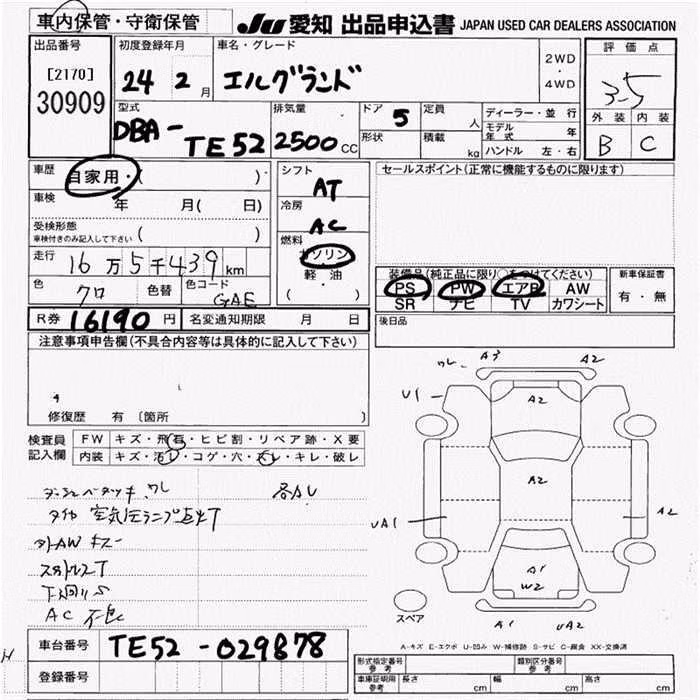 車内保管・守衛保管
JU 愛知 出品申込書 JAPAN USED CAR DEALERS ASSOCIATION
出品番号
[2170]
30909
初度登録年月
24 2月
車名・グレード
エルグランド
2WD
・
4WD
評価点
3.5
外装 内装
B C
型式
DBA-TE52
排気量
2500CC
ドア 5
形状
定員 人
積載 kg
ディーラー・並行
モデル年式 年
ハンドル 左・右
車歴
自家用・( )
車検
年 月(日)
受検形態
車検付きのみ記入して下さい ( )
走行
16万5千439km
色 クロ
色替
色コード GAE
シフト
AT
冷房
AC
燃料
ガソリン
軽油
( ・ )
セールスポイント(正常に機能するものに限ります)
装備品(純正品に限り○をつけてください)
PS PW エアB AW
SR ナビ TV カワシート
新車保証書
有・無
後日品
R券 16190円
名変通知期限 月 日
注意事項申告欄(不具合内容等は具体的に記入して下さい)
修復歴 有 〔箇所 〕
検査員記入欄
FW キズ・飛石・ヒビ割・リペア跡・X要
内装 キズ・汚レ・コゲ・穴・スレ・キレ・破レ
ワレ
タイヤ空気圧ランプ点灯
AW キズ
AC
車台番号 TE52-029878
登録番号
ワレ A3 A2
U1 A2
A2
UA1 A2
A1
W2
A1 UA2
スペア
A-キズ E-エクボ U-凹み W-補修跡 S-サビ C-腐食 XX-交換済
形式指定番号 参考
類別区分番号 参考
車庫証明用 参考
長さ cm
幅 cm
高さ cm